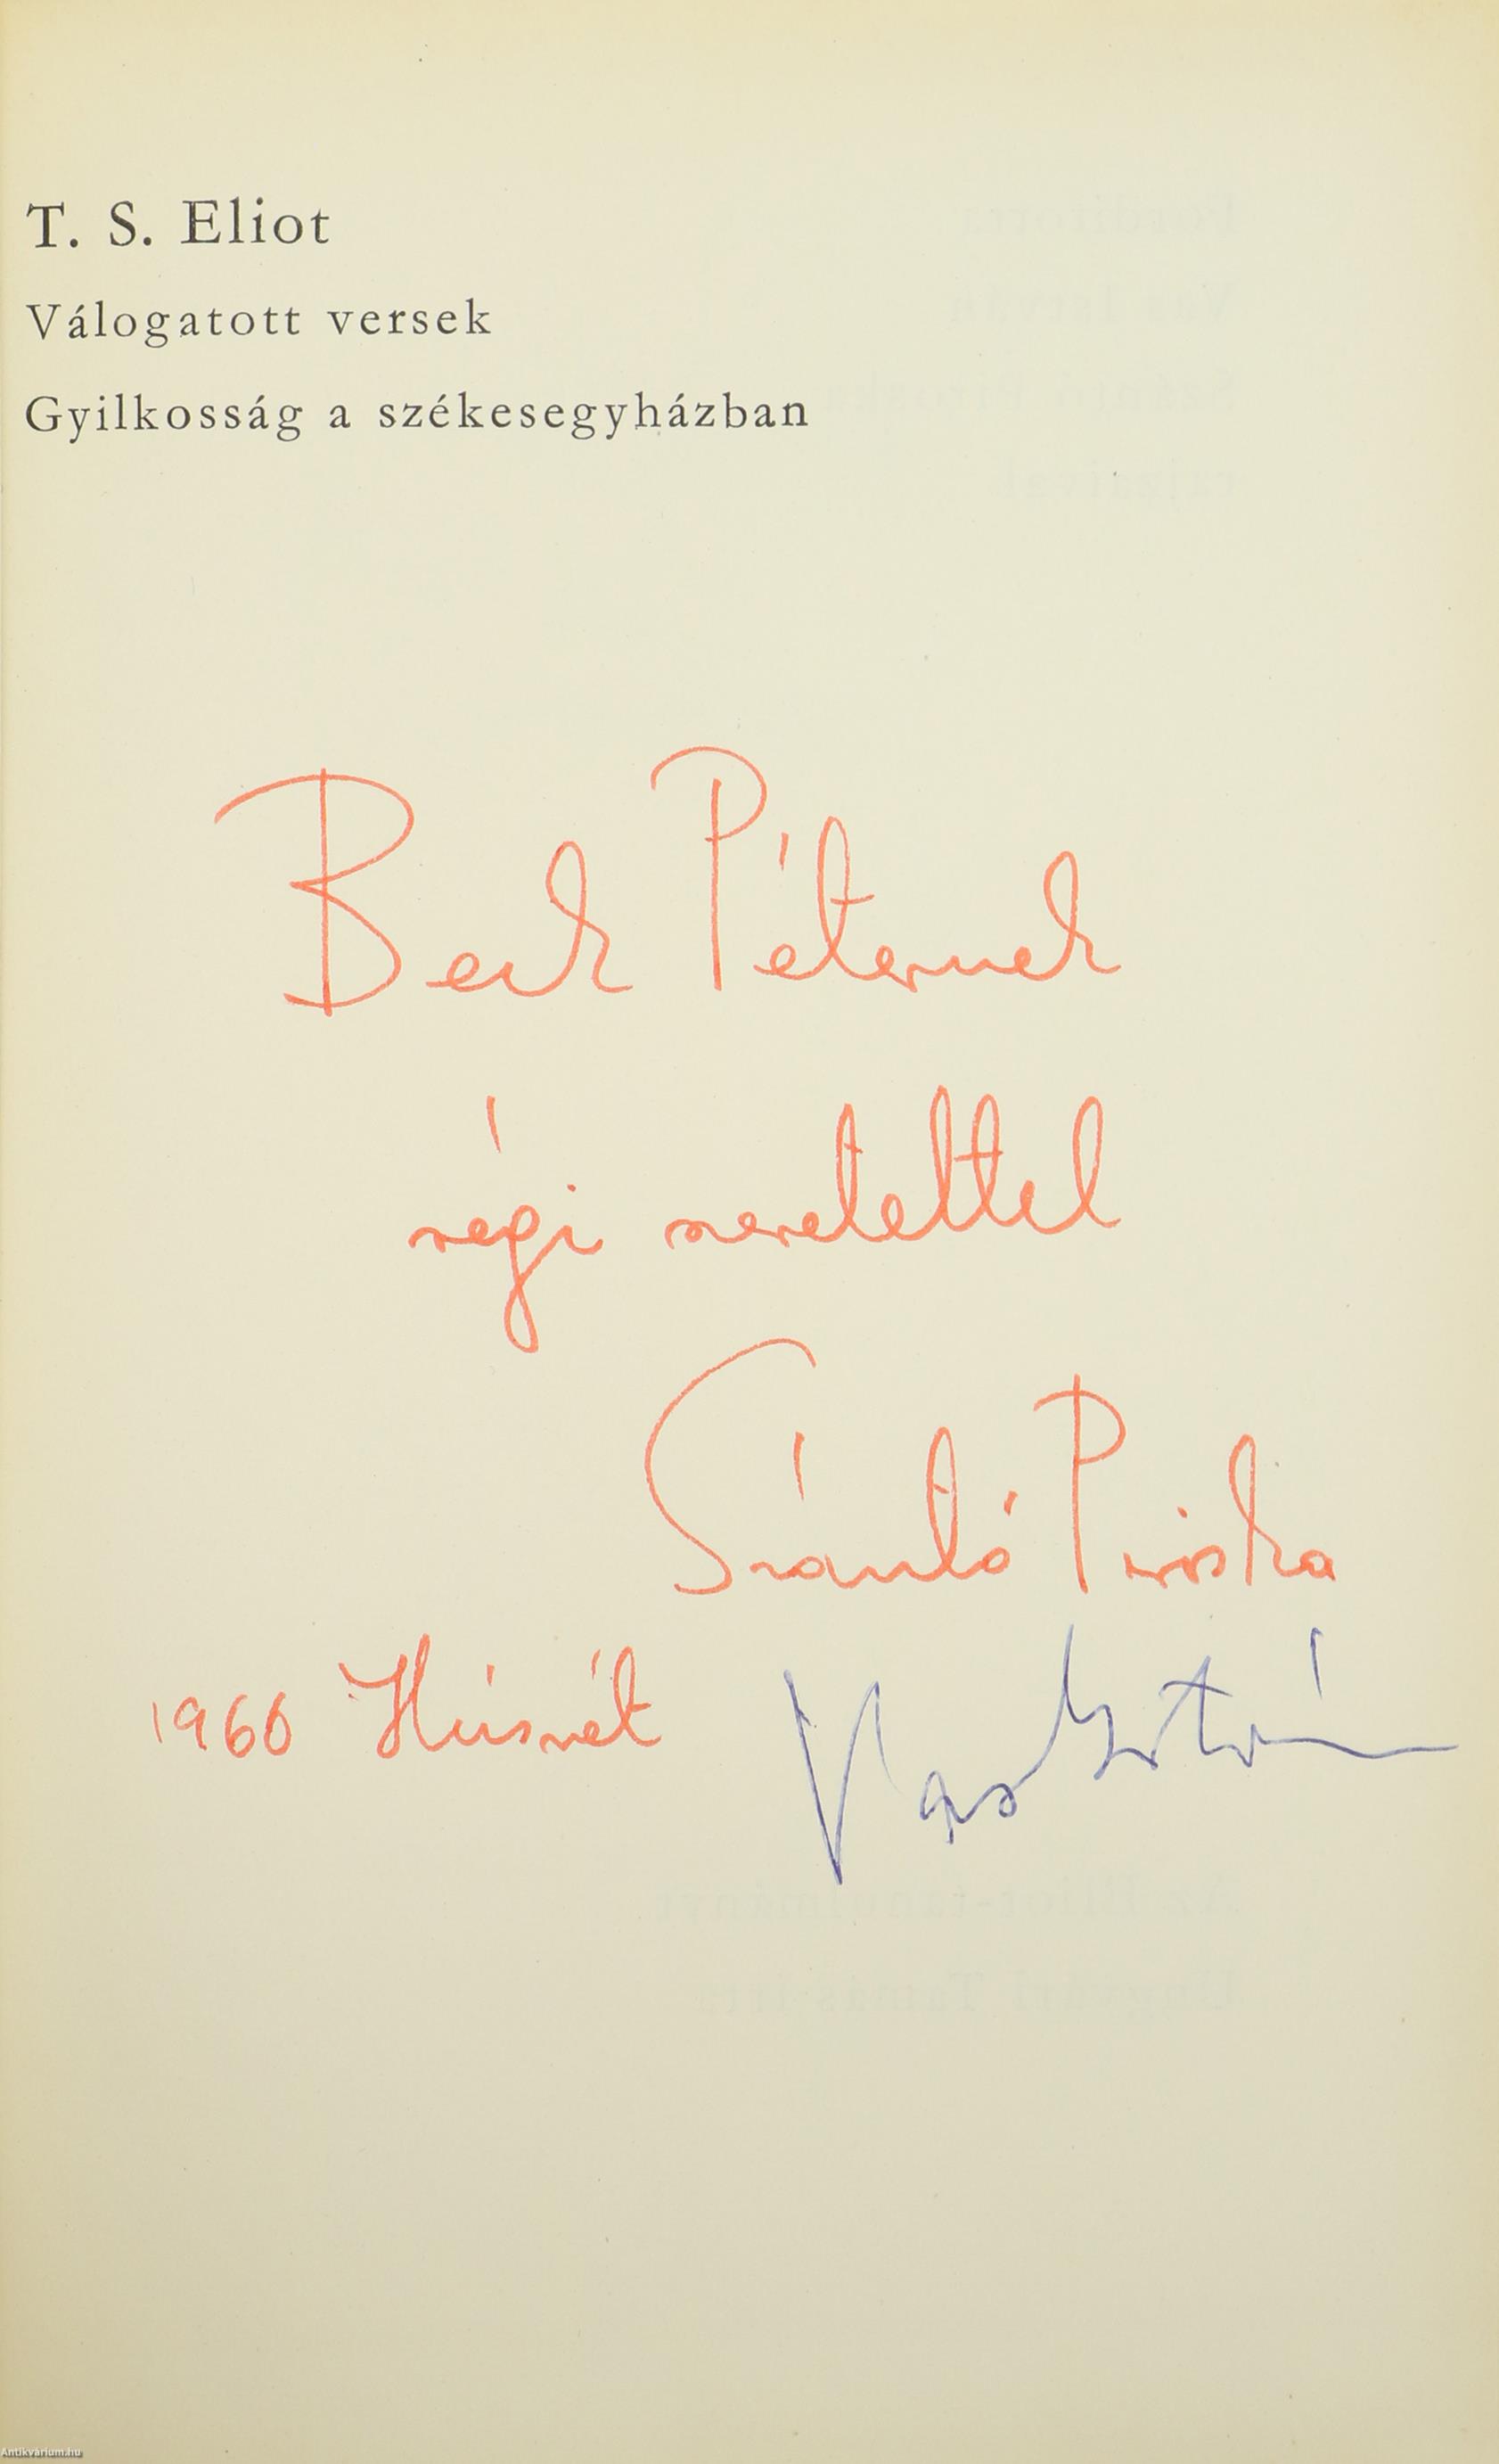 T. S. Eliot
Válogatott versek
Gyilkosság a székesegyházban
Beck Péternek
régi szeretettel
Szántó Piroska
1966 Húsvét
Vas István
Antikvárium.hu